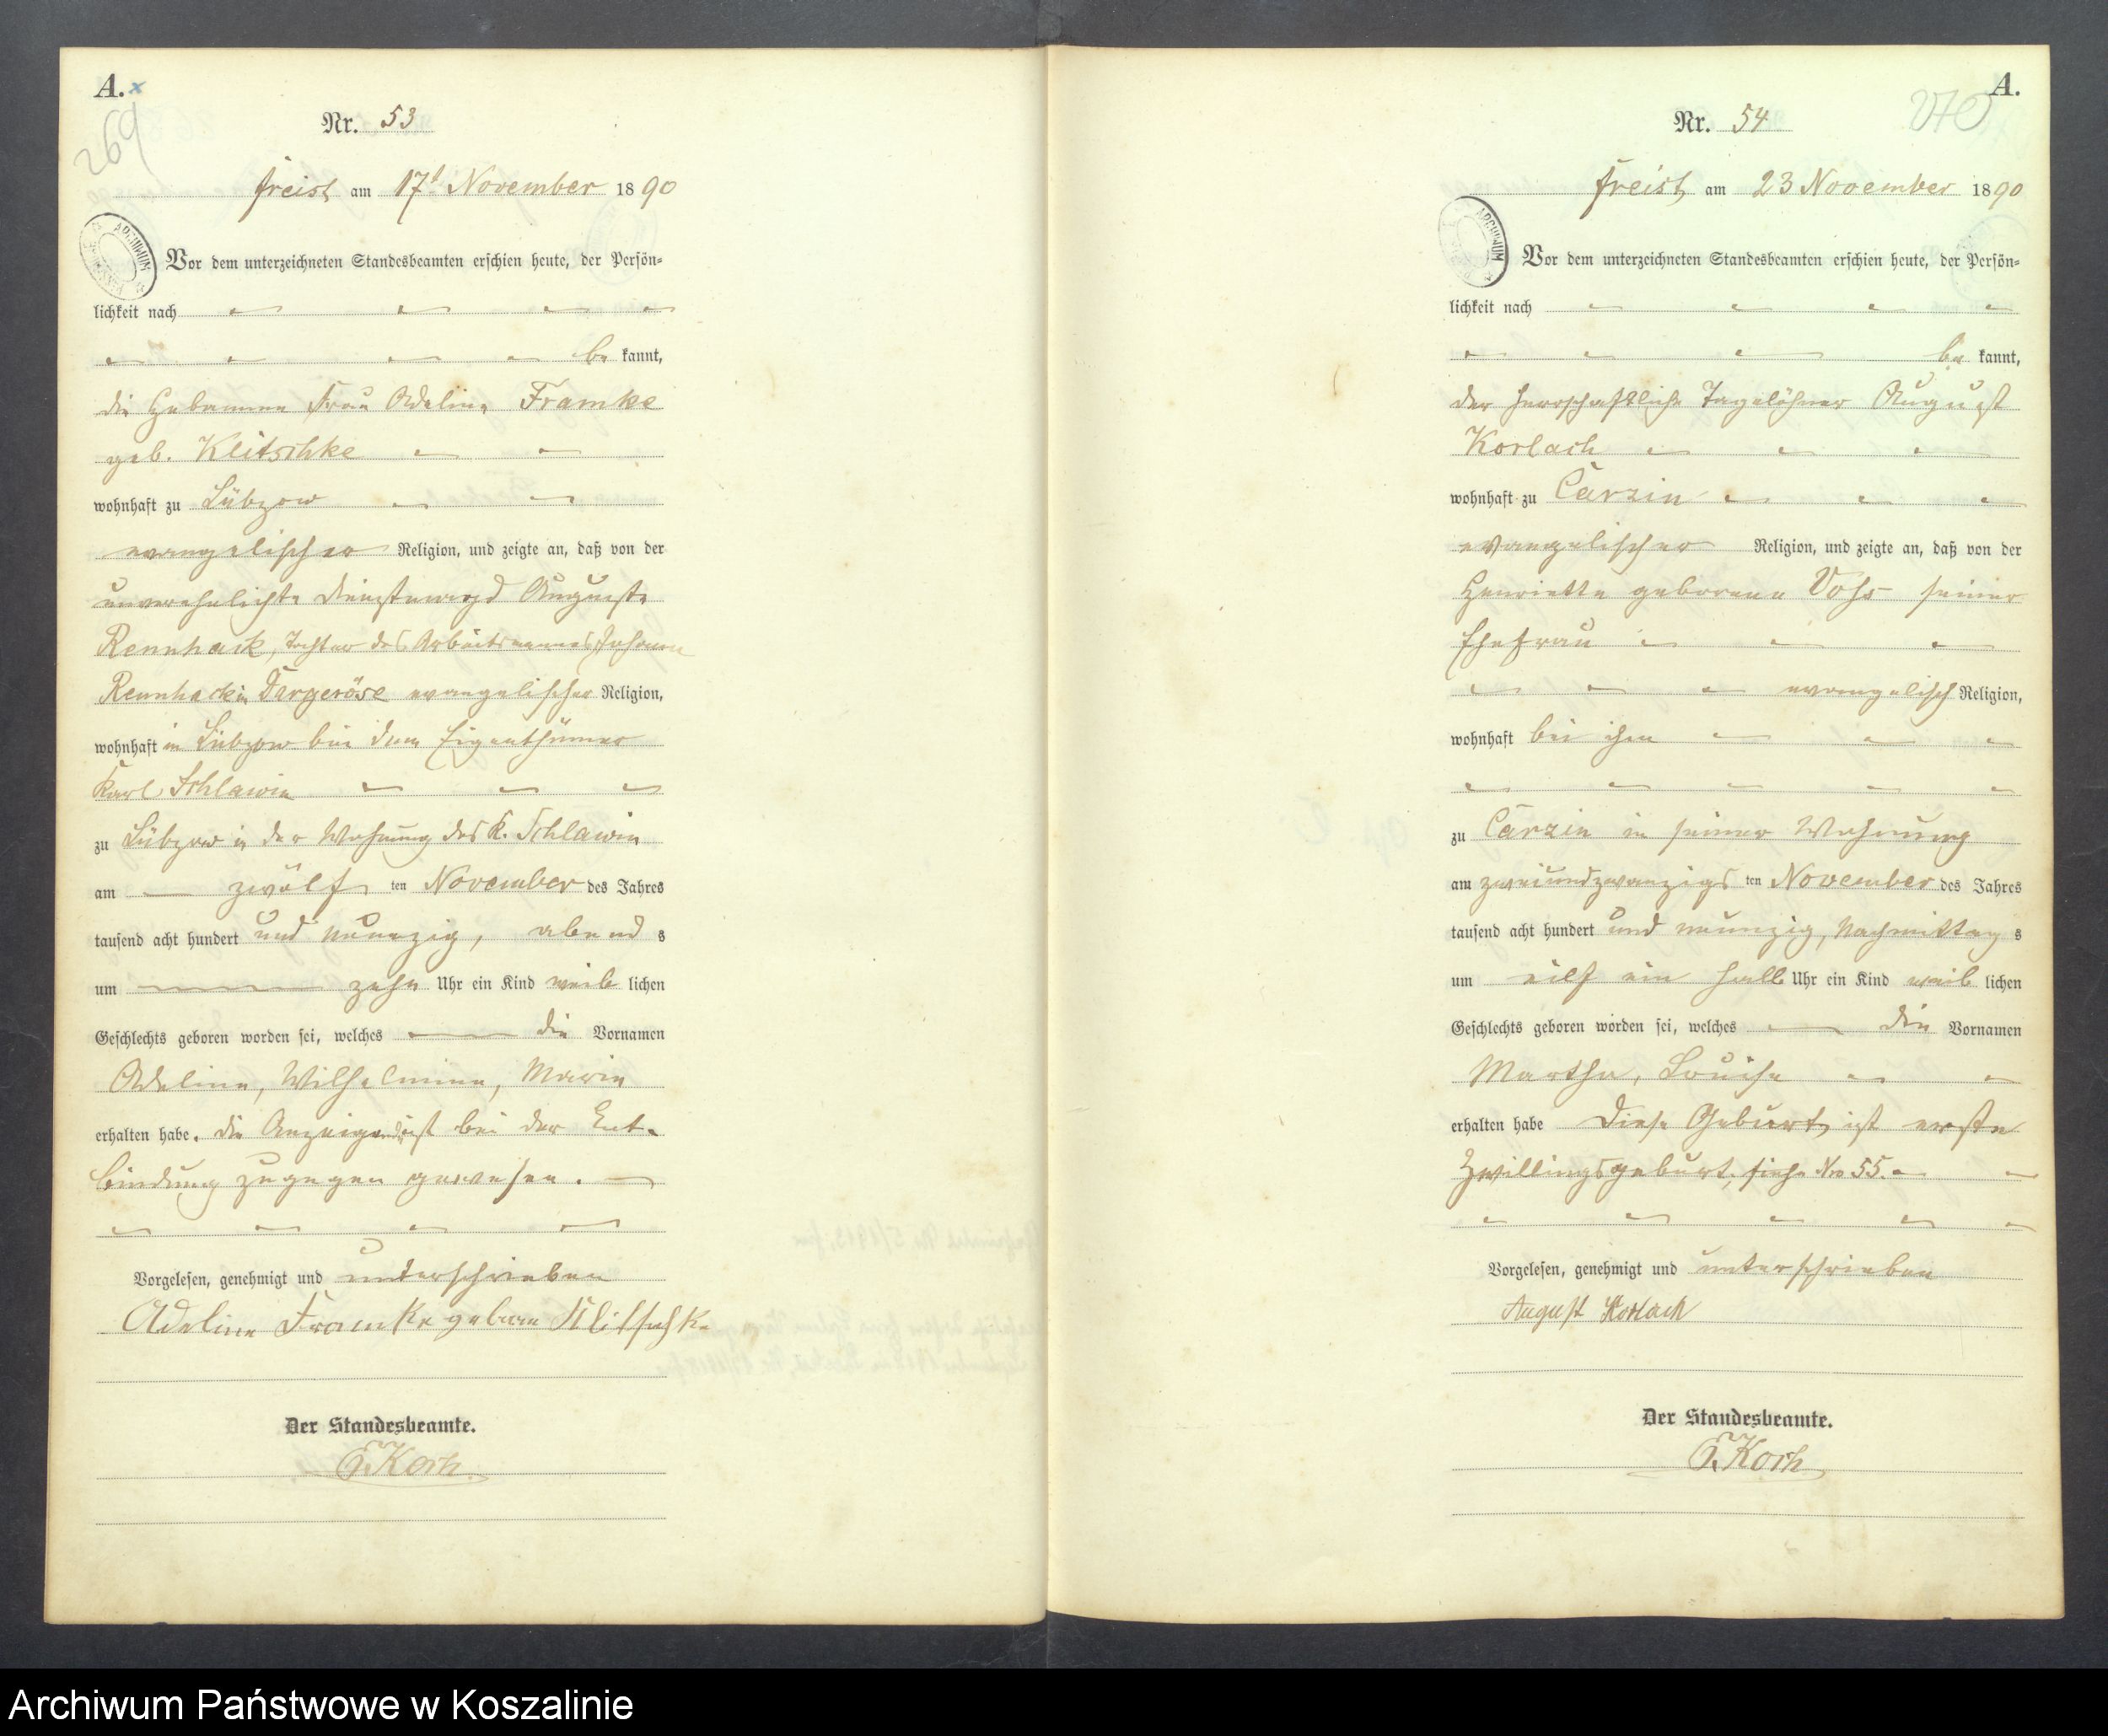 A. x
269
Nr. 53
Freist am 17t November 1890
Vor dem unterzeichneten Standesbeamten erschien heute, der Persön-
lichkeit nach
be kannt,
die Hebamme Frau Adeline Framke
geb. Klitschke
wohnhaft zu Lübzow
evangelischer Religion, und zeigte an, daß von der
unverehelichte Dienstmagd Auguste
Rennhack, Tochter des Arbeitsmannes Johann
Rennhack in Dargeröse evangelischer Religion,
wohnhaft in Lübzow bei dem Eigenthümer
Karl Schlawin
zu Lübzow in der Wohnung des K. Schlawin
am zwölf ten November des Jahres
tausend acht hundert und neunzig, abend s
um zehn Uhr ein Kind weib lichen
Geschlechts geboren worden sei, welches die Vornamen
Adeline, Wilhelmine, Marie
erhalten habe. die Anzeigende ist bei der Ent-
bindung zugegen gewesen.
Vorgelesen, genehmigt und unterschrieben
Adeline Framke geborne Klitschke
Der Standesbeamte.
Koch
A.
270
Nr. 54
Freist am 23 November 1890
Vor dem unterzeichneten Standesbeamten erschien heute, der Persön-
lichkeit nach
be kannt,
der herrschaftliche Tagelöhner August
Korlach
wohnhaft zu Carzin
evangelischer Religion, und zeigte an, daß von der
Henriette geborene Vohs seiner
Ehefrau
evangelisch Religion,
wohnhaft bei ihm
zu Carzin in seiner Wohnung
am zweiundzwanzigs ten November des Jahres
tausend acht hundert und neunzig, Nachmittag s
um eilf ein halb Uhr ein Kind weib lichen
Geschlechts geboren worden sei, welches die Vornamen
Martha, Louise
erhalten habe Diese Geburt ist erste
Zwillingsgeburt, siehe Nro 55.
Vorgelesen, genehmigt und unterschrieben
August Korlach
Der Standesbeamte.
Koch
Archiwum Państwowe w Koszalinie